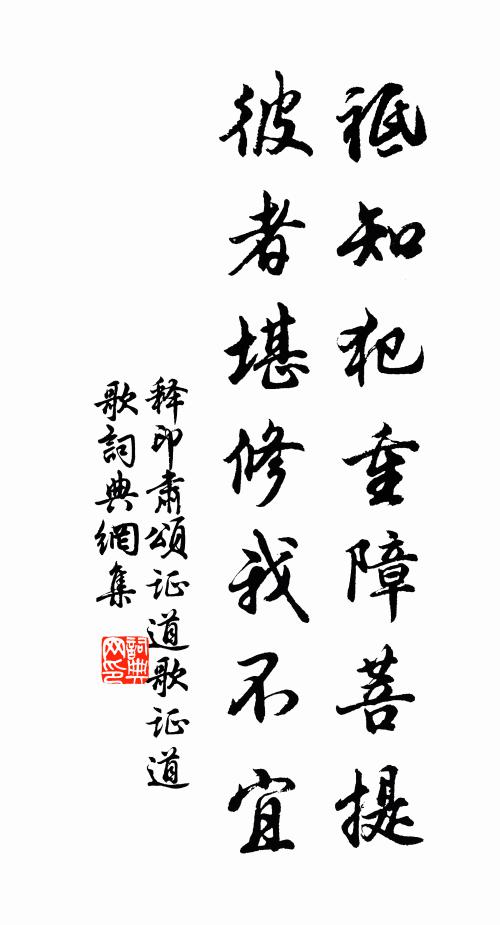 祗知犯重障菩提
彼者堪修我不宜
释印肃颂证道歌证道
歌詞典網集
詞典
网印